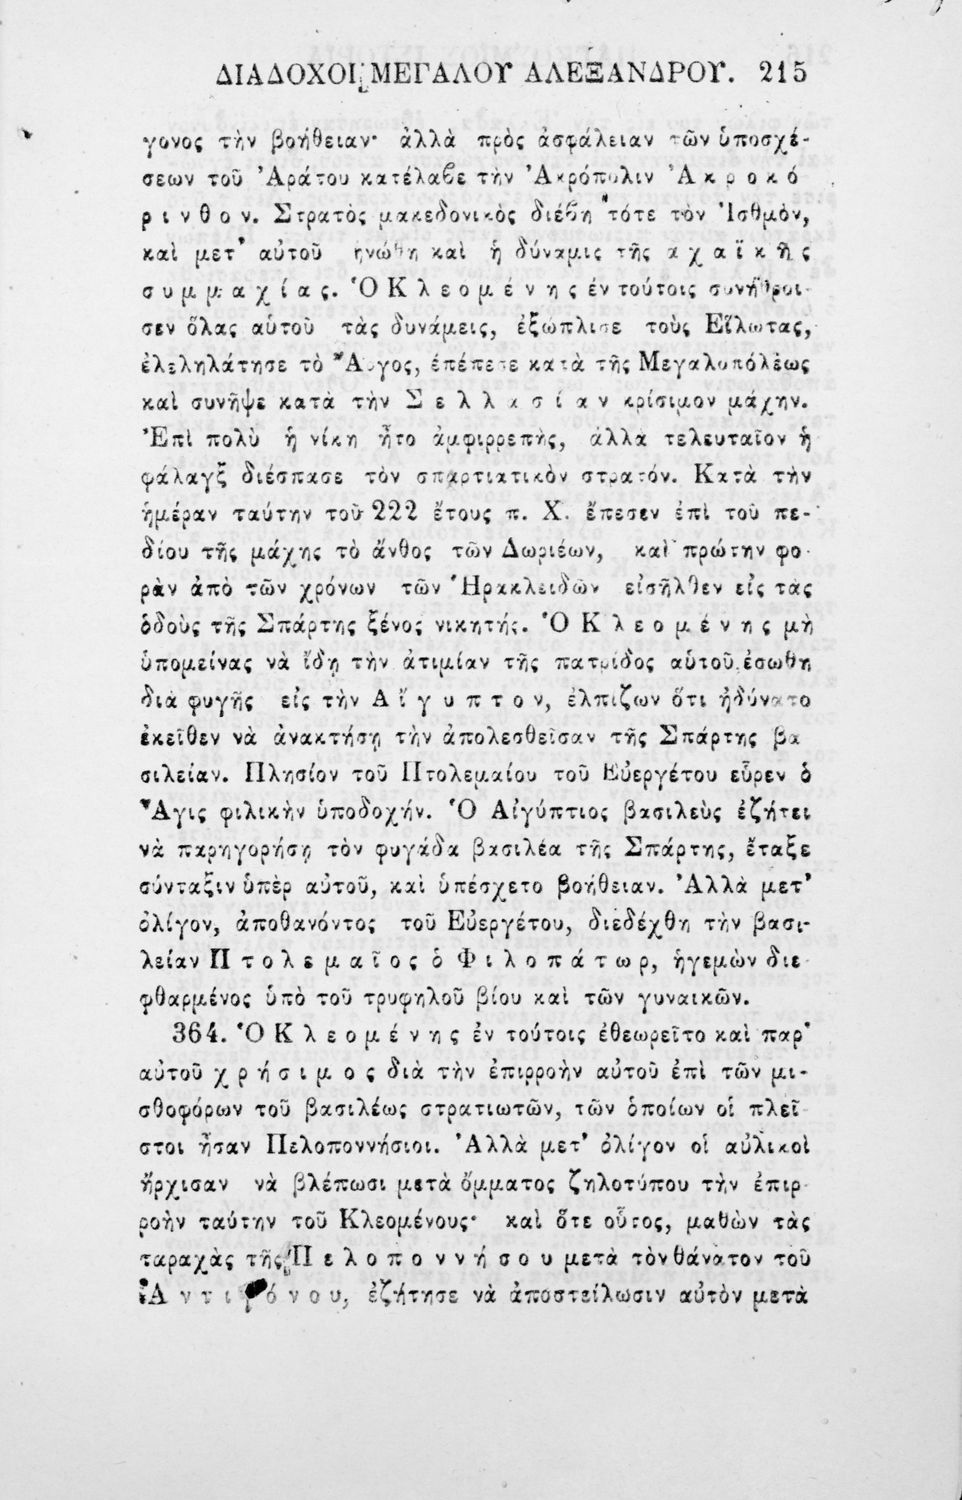 ΔΙΑΔΟΧΟΙ ΜΕΓΑΛΟΥ ΑΛΕΞΑΝΔΡΟΥ. 215
γονος τὴν βοήθειαν· ἀλλὰ πρὸς ἀσφάλειαν τῶν ὑποσχέ-
σεων τοῦ Ἀράτου κατέλαβε τὴν Ἀκρόπολιν Ἀκροκό
ρινθον. Στρατὸς μακεδονικὸς διέβη τότε τὸν Ἰσθμὸν,
καὶ μετ' αὐτοῦ ἡνώθη καὶ ἡ δύναμις τῆς ἀχαϊκῆς
συμμαχίας. Ὁ Κλεομένης ἐν τούτοις συνήθροι-
σεν ὅλας αὑτοῦ τὰς δυνάμεις, ἐξώπλισε τοὺς Εἵλωτας,
ἐλεηλάτησε τὸ Ἄργος, ἐπέπεσε κατὰ τῆς Μεγαλοπόλεως
καὶ συνῆψε κατὰ τὴν Σελλασίαν κρίσιμον μάχην.
Ἐπὶ πολὺ ἡ νίκη ἦτο ἀμφιρρεπὴς, ἀλλὰ τελευταῖον ἡ
φάλαγξ διέσπασε τὸν σπαρτιατικὸν στρατόν. Κατὰ τὴν
ἡμέραν ταύτην τοῦ 222 ἔτους π. Χ. ἔπεσεν ἐπὶ τοῦ πε-
δίου τῆς μάχης τὸ ἄνθος τῶν Δωριέων, καὶ πρώτην φο-
ρὰν ἀπὸ τῶν χρόνων τῶν Ἡρακλειδῶν εἰσῆλθεν εἰς τὰς
ὁδοὺς τῆς Σπάρτης ξένος νικητής. Ὁ Κλεομένης μὴ
ὑπομείνας νὰ ἴδῃ τὴν ἀτιμίαν τῆς πατρίδος αὑτοῦ, ἐσώθη
διὰ φυγῆς εἰς τὴν Αἴγυπτον, ἐλπίζων ὅτι ἠδύνατο
ἐκεῖθεν νὰ ἀνακτήσῃ τὴν ἀπολεσθεῖσαν τῆς Σπάρτης βα
σιλείαν. Πλησίον τοῦ Πτολεμαίου τοῦ Εὐεργέτου εὗρεν ὁ
Ἄγις φιλικὴν ὑποδοχήν. Ὁ Αἰγύπτιος βασιλεὺς ἐζήτει
νὰ παρηγορήσῃ τὸν φυγάδα βασιλέα τῆς Σπάρτης, ἔταξε
σύνταξιν ὑπὲρ αὐτοῦ, καὶ ὑπέσχετο βοήθειαν. Ἀλλὰ μετ'
ὀλίγον, ἀποθανόντος τοῦ Εὐεργέτου, διεδέχθη τὴν βασι-
λείαν Πτολεμαῖος ὁ Φιλοπάτωρ, ἡγεμὼν διε-
φθαρμένος ὑπὸ τοῦ τρυφηλοῦ βίου καὶ τῶν γυναικῶν.
364. Ὁ Κλεομένης ἐν τούτοις ἐθεωρεῖτο καὶ παρ'
αὐτοῦ χρήσιμος διὰ τὴν ἐπιρροὴν αὐτοῦ ἐπὶ τῶν μι-
σθοφόρων τοῦ βασιλέως στρατιωτῶν, τῶν ὁποίων οἱ πλεῖ-
στοι ἦσαν Πελοποννήσιοι. Ἀλλὰ μετ' ὀλίγον οἱ αὐλικοὶ
ἤρχισαν νὰ βλέπωσι μετὰ ὄμματος ζηλοτύπου τὴν ἐπιρ-
ροὴν ταύτην τοῦ Κλεομένους· καὶ ὅτε οὗτος, μαθὼν τὰς
ταραχὰς τῆς Πελοποννήσου μετὰ τὸν θάνατον τοῦ
Ἀντιγόνου, ἐζήτησε νὰ ἀποστείλωσιν αὐτὸν μετὰ